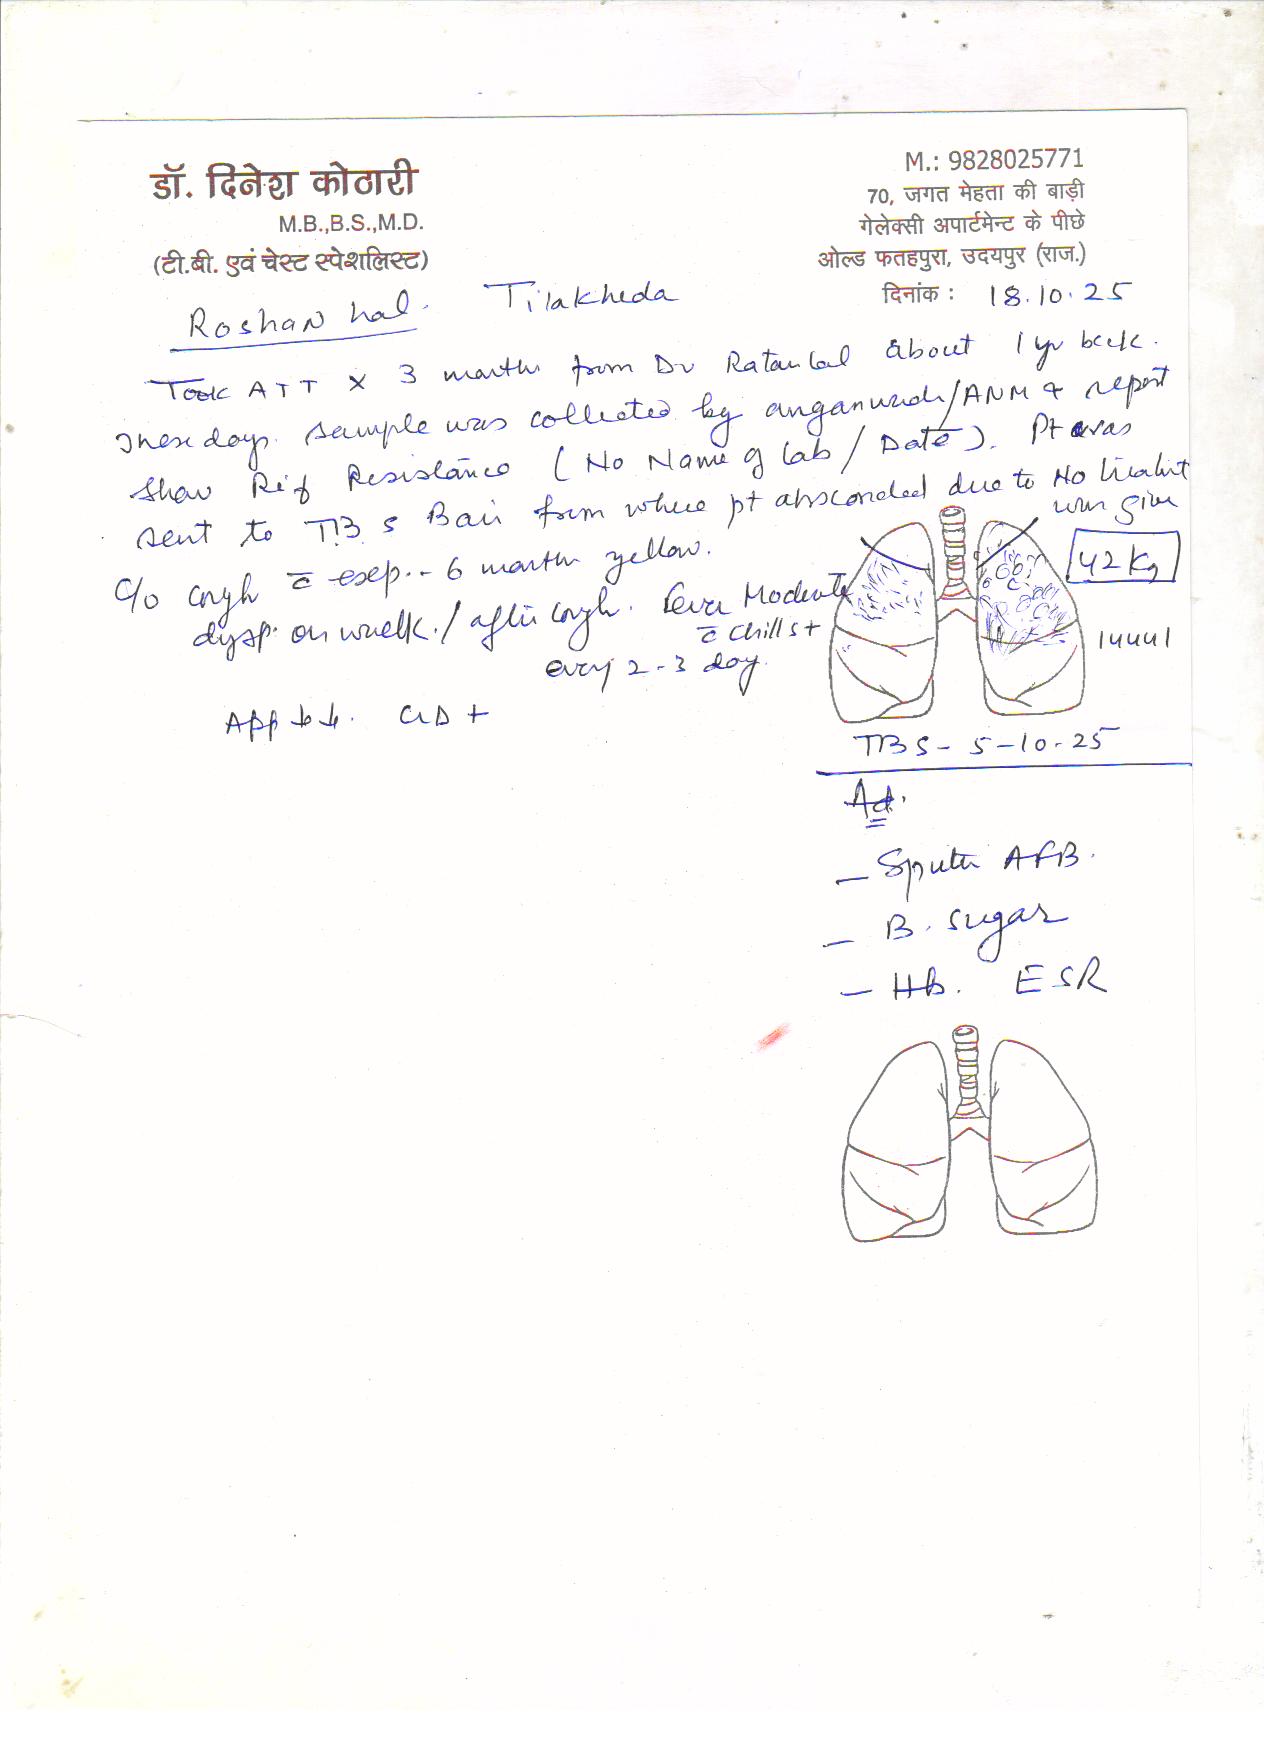 डॉ. दिनेश कोठारी
M.B.,B.S.,M.D.
(टी.बी. एवं चेस्ट स्पेशलिस्ट)
M.: 9828025771
70, जगत मेहता की बाड़ी
गेलेक्सी अपार्टमेन्ट के पीछे
ओल्ड फतहपुरा, उदयपुर (राज.)
दिनांक : 18.10.25
Roshan Lal. Tilakheda
Took ATT x 3 months from Dr Ratanlal about 1 yr back.
These days. Sample was collected by anganwadi/ANM & report
show Rif Resistance (No Name of Lab / Date). Pt was
sent to TBS Bari from where pt absconded due to No
was given
C/o cough c̄ exep. - 6 months yellow.
dysp. on walk. / after cough. Fever Moderate
c̄ chills +
every 2-3 day.
App ↓↓. GD +
42 Kg
14441
TBS - 5-10-25
Ad.
- Sputm AFB.
- B. sugar
- Hb. ESR